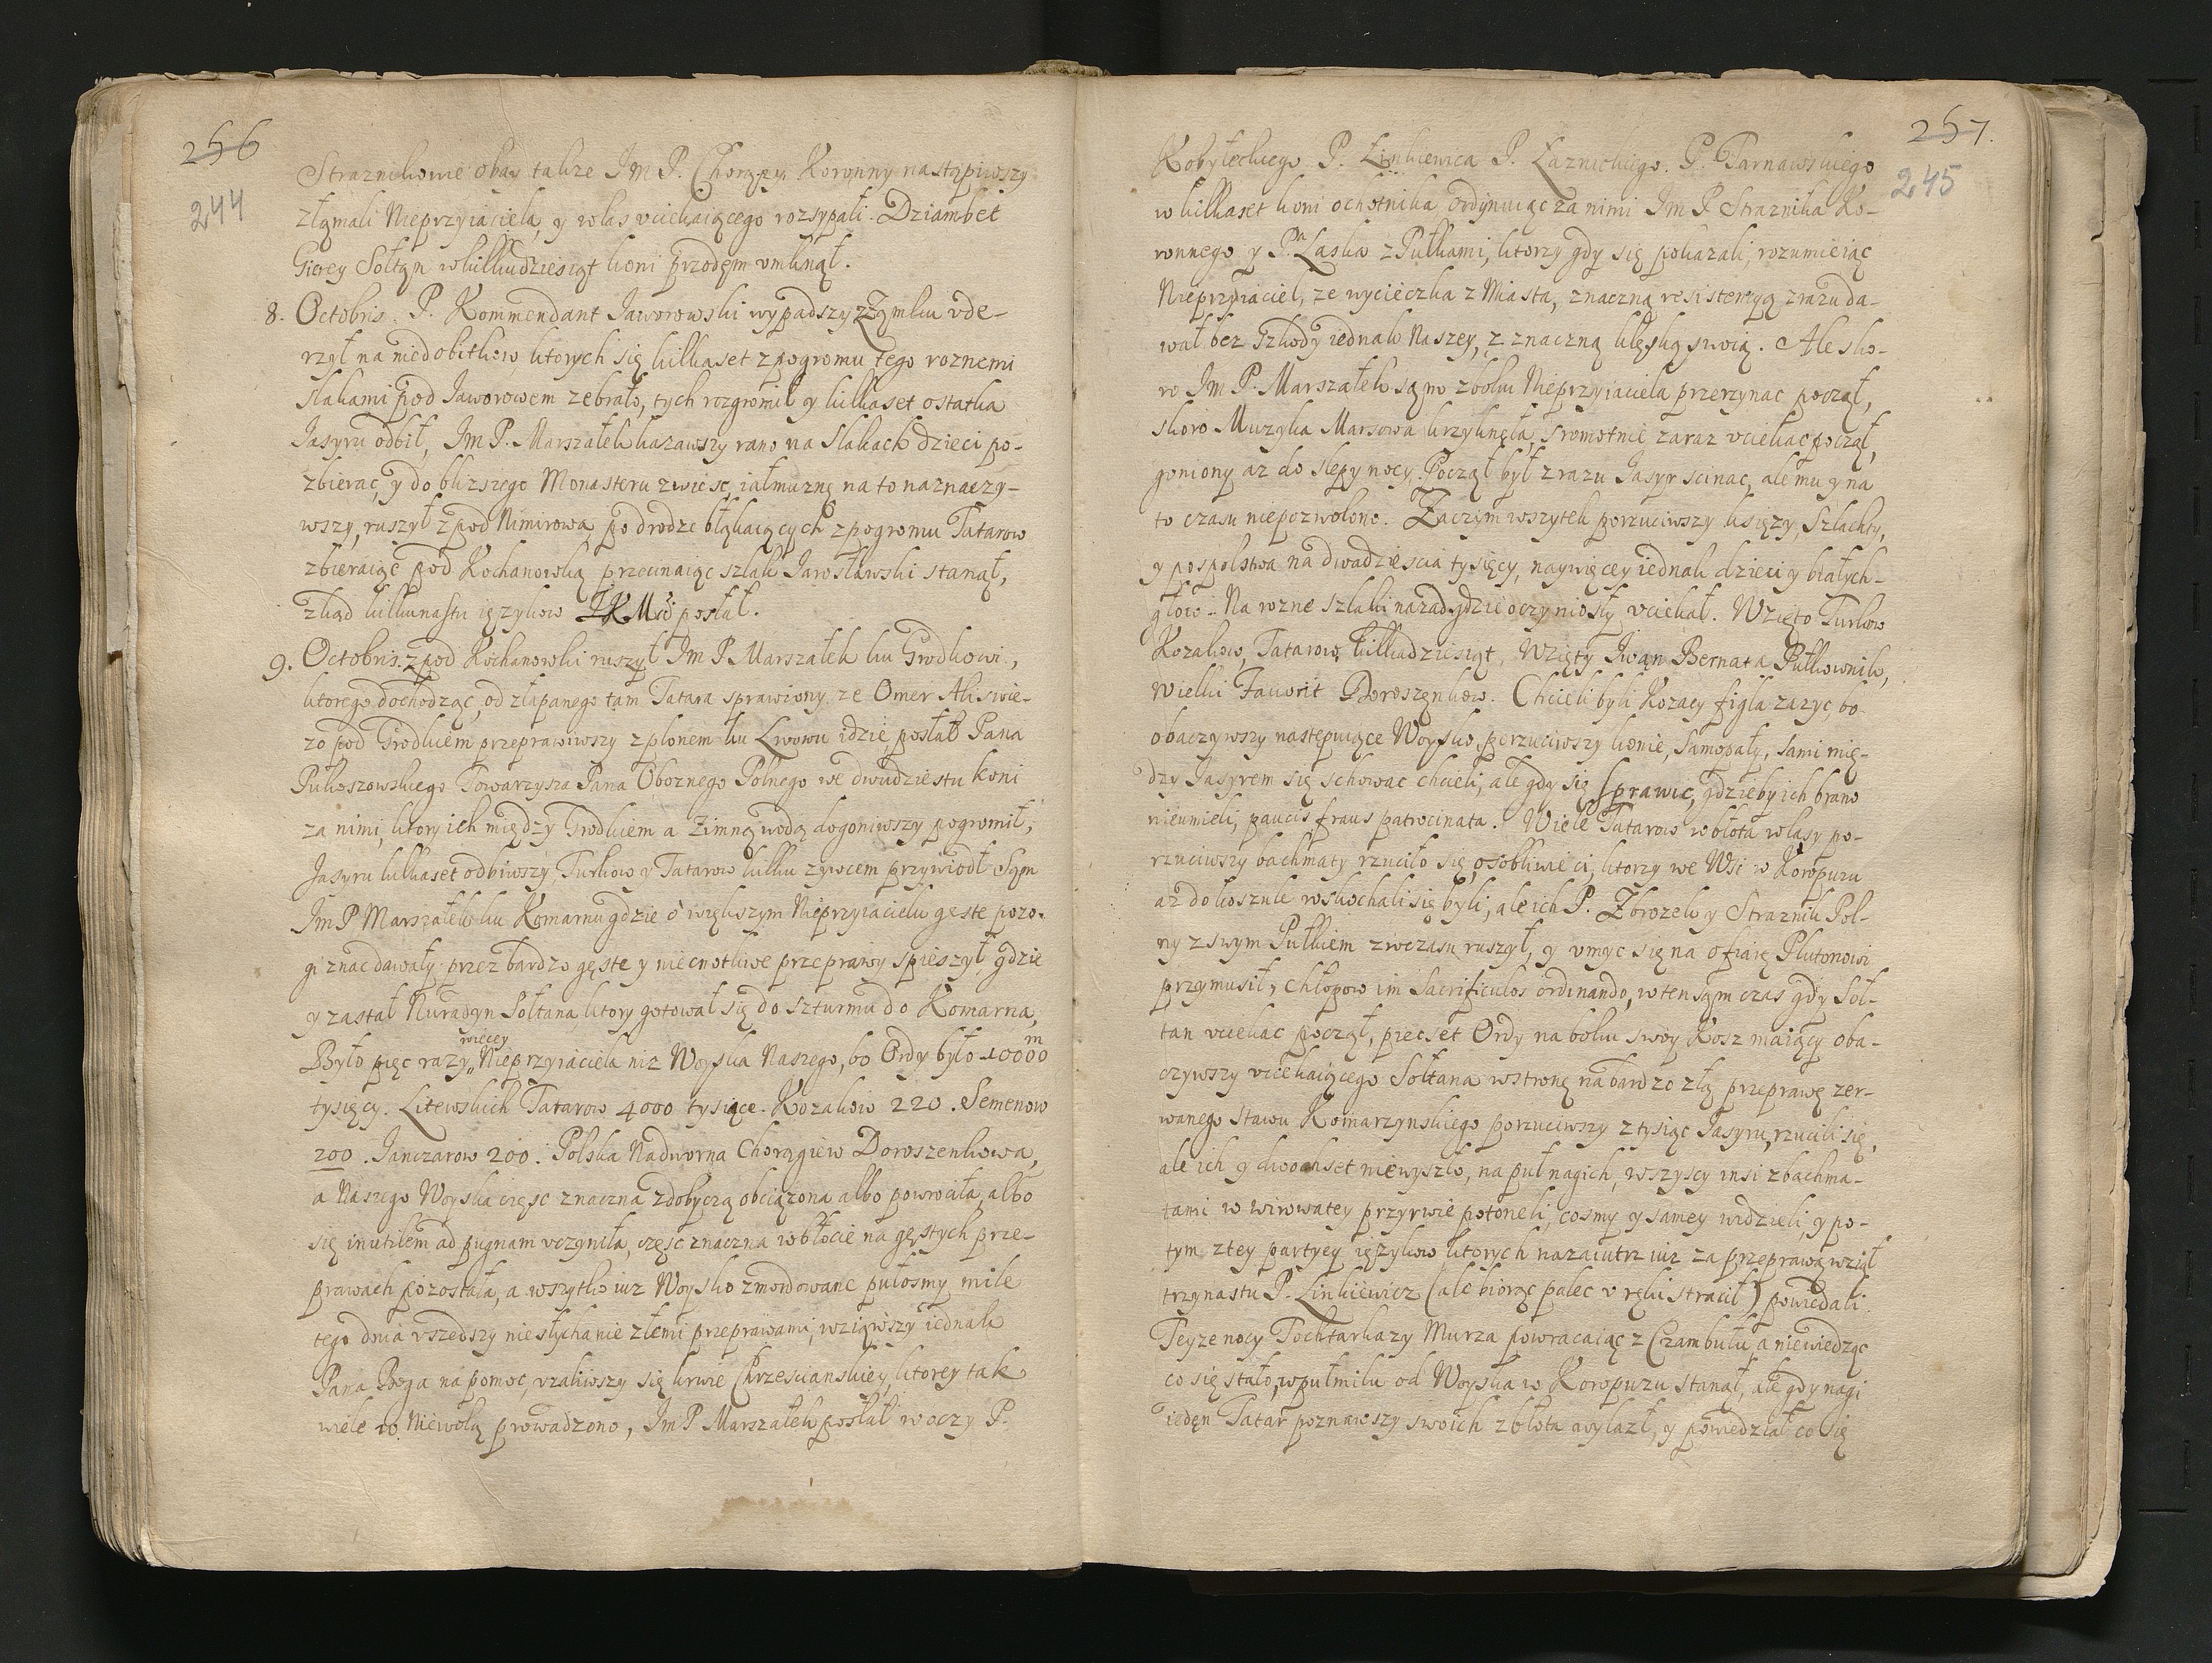 256
244
Straznikowie obay takze Im P. Chorązy Koronny nastąpiwszy
złąmali Nieprzyiaciela, y w las vciekaiącego rozsypali. Dziambet
Gierey Sołtąn w kilkudziesiąt koni przodęm vmknął.
8. Octobris. P. Kommendant Iaworowski wypadszy z Zamku vde-
rzył na niedobitkow ktorych się kilkaset z pogromu tego roznemi
slakami pod Iaworowem zebrało, tych rozgromił y kilkaset ostatka
Iasyru odbił, Im P. Marszałek kazawszy rano na slakach dzieci po-
zbierac, y do blizszego Monasteru zwiesc, iałmuznę na to naznaczy-
wszy, ruszył z pod Nimirowa, po drodze błąkaiących z pogromu Tatarow
zbieraiąc pod Kochanowką przeunaiąc szlak Iarosławski stanął,
zkąd kilkunastu ięzykow IKMsci posłał.
9. Octobris. z pod Kochanowki ruszył Im P Marszałek ku Grodkowi,
ktorego dochodząc, od złapanego tam Tatara sprawiony, ze Omer Ali swie-
zo pod Grodkiem przeprawiwszy z plonem ku Lwowu idzie, posłał Pana
Pukoszowskiego Towarzysza Pana Oboznego Polnego we dwudziestu koni
za nimi, ktory ich między Grodkiem a Zimną wodą dogoniwszy pogromił,
Jasyru kilkaset odbiwszy, Turkow y Tatarow kilku zywcem przywiodł Sąm
Im P Marszałek ku Komarnu gdzie o większym Nieprzyiacielu gęste pozo-
gi znac dawały, przez bardzo gęste y niecnotliwe przeprawy spieszył, gdzie
y zastał Nuradyn Sołtana ktory gotował się do szturmu do Komarna,
Było pięc razy więcey Nieprzyiaciela niz Woyska Naszego, bo Ordy było 10000 m
tysięcy. Litewskich Tatarow 4000 tysiące. Kozakow 220. Semenow
200. Ianczarow 200. Polska Nadworna Chorągiew Doroszenkowa,
a Naszego Woyska częsc znaczna zdobyczą obciązona albo powrociła, albo
się inutilem ad pugnam vczyniła, częsc znaczna w błocie na gęstych prze-
prawach pozostała, a wszytko iuz Woysko zmordowane pułosmy mile
tego dnia vszedszy niesłychanie złemi przeprawami, wziąwszy iednak
Pana Boga na pomoc, vzaliwszy się krwie Chrzescianskiey, ktorey tak
wiele w Niewolą prowadzono, Im P Marszałek posłał w oczy P.
257.
245
Kobyłeckiego P. Linkiewica P. Łaznickiego. P. Tarnawskiego
w kilkaset koni ochotnika ordynuiąc za nimi Im P Straznika Ko-
ronnego y Pa Laska z Pułkami, ktorzy gdy się pokazali, rozumieiąc
Nieprzyiaciel, ze wycieczka z Miasta, znaczną resistencyą zrazu da-
wał bez szkody iednak Naszey, z znaczną klęską swoią. Ale sko-
ro Im P. Marszałek sąm z boku Nieprzyiaciela przerzynac począł,
skoro Muzyka Marsowa krzyknęła, sromotnie zaraz vciekac począł,
goniony az do slepy nocy. Począł był zrazu Iasyr scinac, ale mu y na
to czasu niepozwolono. Zaczym wszytek porzuciwszy księzy, Szlachty,
y pospolstwa na dwadziescia tysięcy, naywięcey iednak dzieci y białych-
głow. Na rozne szlaki nazad gdzie oczy niosły vciekał. Wzięto Turkow
Kozakow, Tatarow, kilkadziesiąt, Wzięty Iwan Bernata Pułkownik,
Wielki Fauorit Doroszęnkow. Chcieli byli Kozacy figla zazyc, bo
obaczywszy następuiące Woysko, porzuciwszy konie, Samopały, sami mię-
dzy Iasyrem się schowac chcieli, ale gdy się sprawic, gdzieby ich brano
nieumieli, paucis fraus patrocinata. Wiele Tatarow w błota w lasy po-
rzuciwszy bachmaty rzuciło się, osobliwie ci, ktorzy we Wsi w Koropuzu
az do koszule wskochali się byli, ale ich P. Zbrozek y Straznik Pol-
ny z swym Pułkiem z wczasu ruszył, y vmyc się na ofiarę Plutonowi
przymusił, chłopow im Sacrificulos ordinando, w ten sąm czas gdy Soł-
tan vciekac począł, pięcset Ordy na boku swoy Kosz maiący oba-
czywszy vciekaiącego Sołtana w stronę na bardzo złą przeprawę zer-
wanego stawu Komarzynskiego porzuciwszy z tysiąc Iasyru, rzucili się,
ale ich y dwochset niewyszło, na puł nagich, wszyscy insi z bachma-
tami w wirowatey przyrwie potoneli, cosmy y samey widzieli, y po-
tym z tey partyey ięzykow ktorych nazaiutrz iuz za przeprawą wziął
trzynastu P. Linkiewicz (ale biorąc palec v ręki stracił) powiedali.
Teyze nocy Tochtarkazy Murza powracaiąc z Czambułu, a niewiedząc
co się stało, w pułmilu od Woyska w Koropuzu stanął, ale gdy nagi
ieden Tatar poznawszy swoich z błota wylazł, y powiedział co się